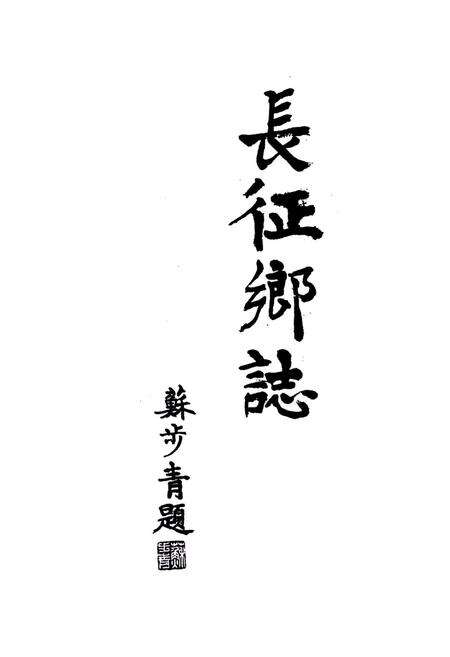 長征鄉誌
蘇步青題